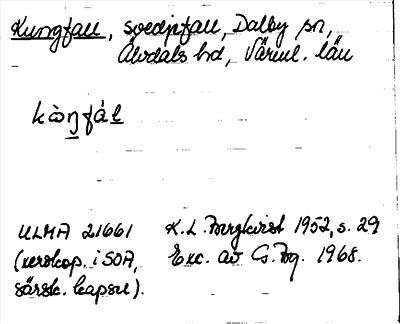 Kungfall, svedjefall, Dalby sn,
Älvdals hd, Värml. län
kὰŋfál
ULMA 21661 K. L. Bergkvist 1952, s. 29
(xeroxkop. i SOA, Exc. av G. Bg. 1968.
särsk. kapsel).